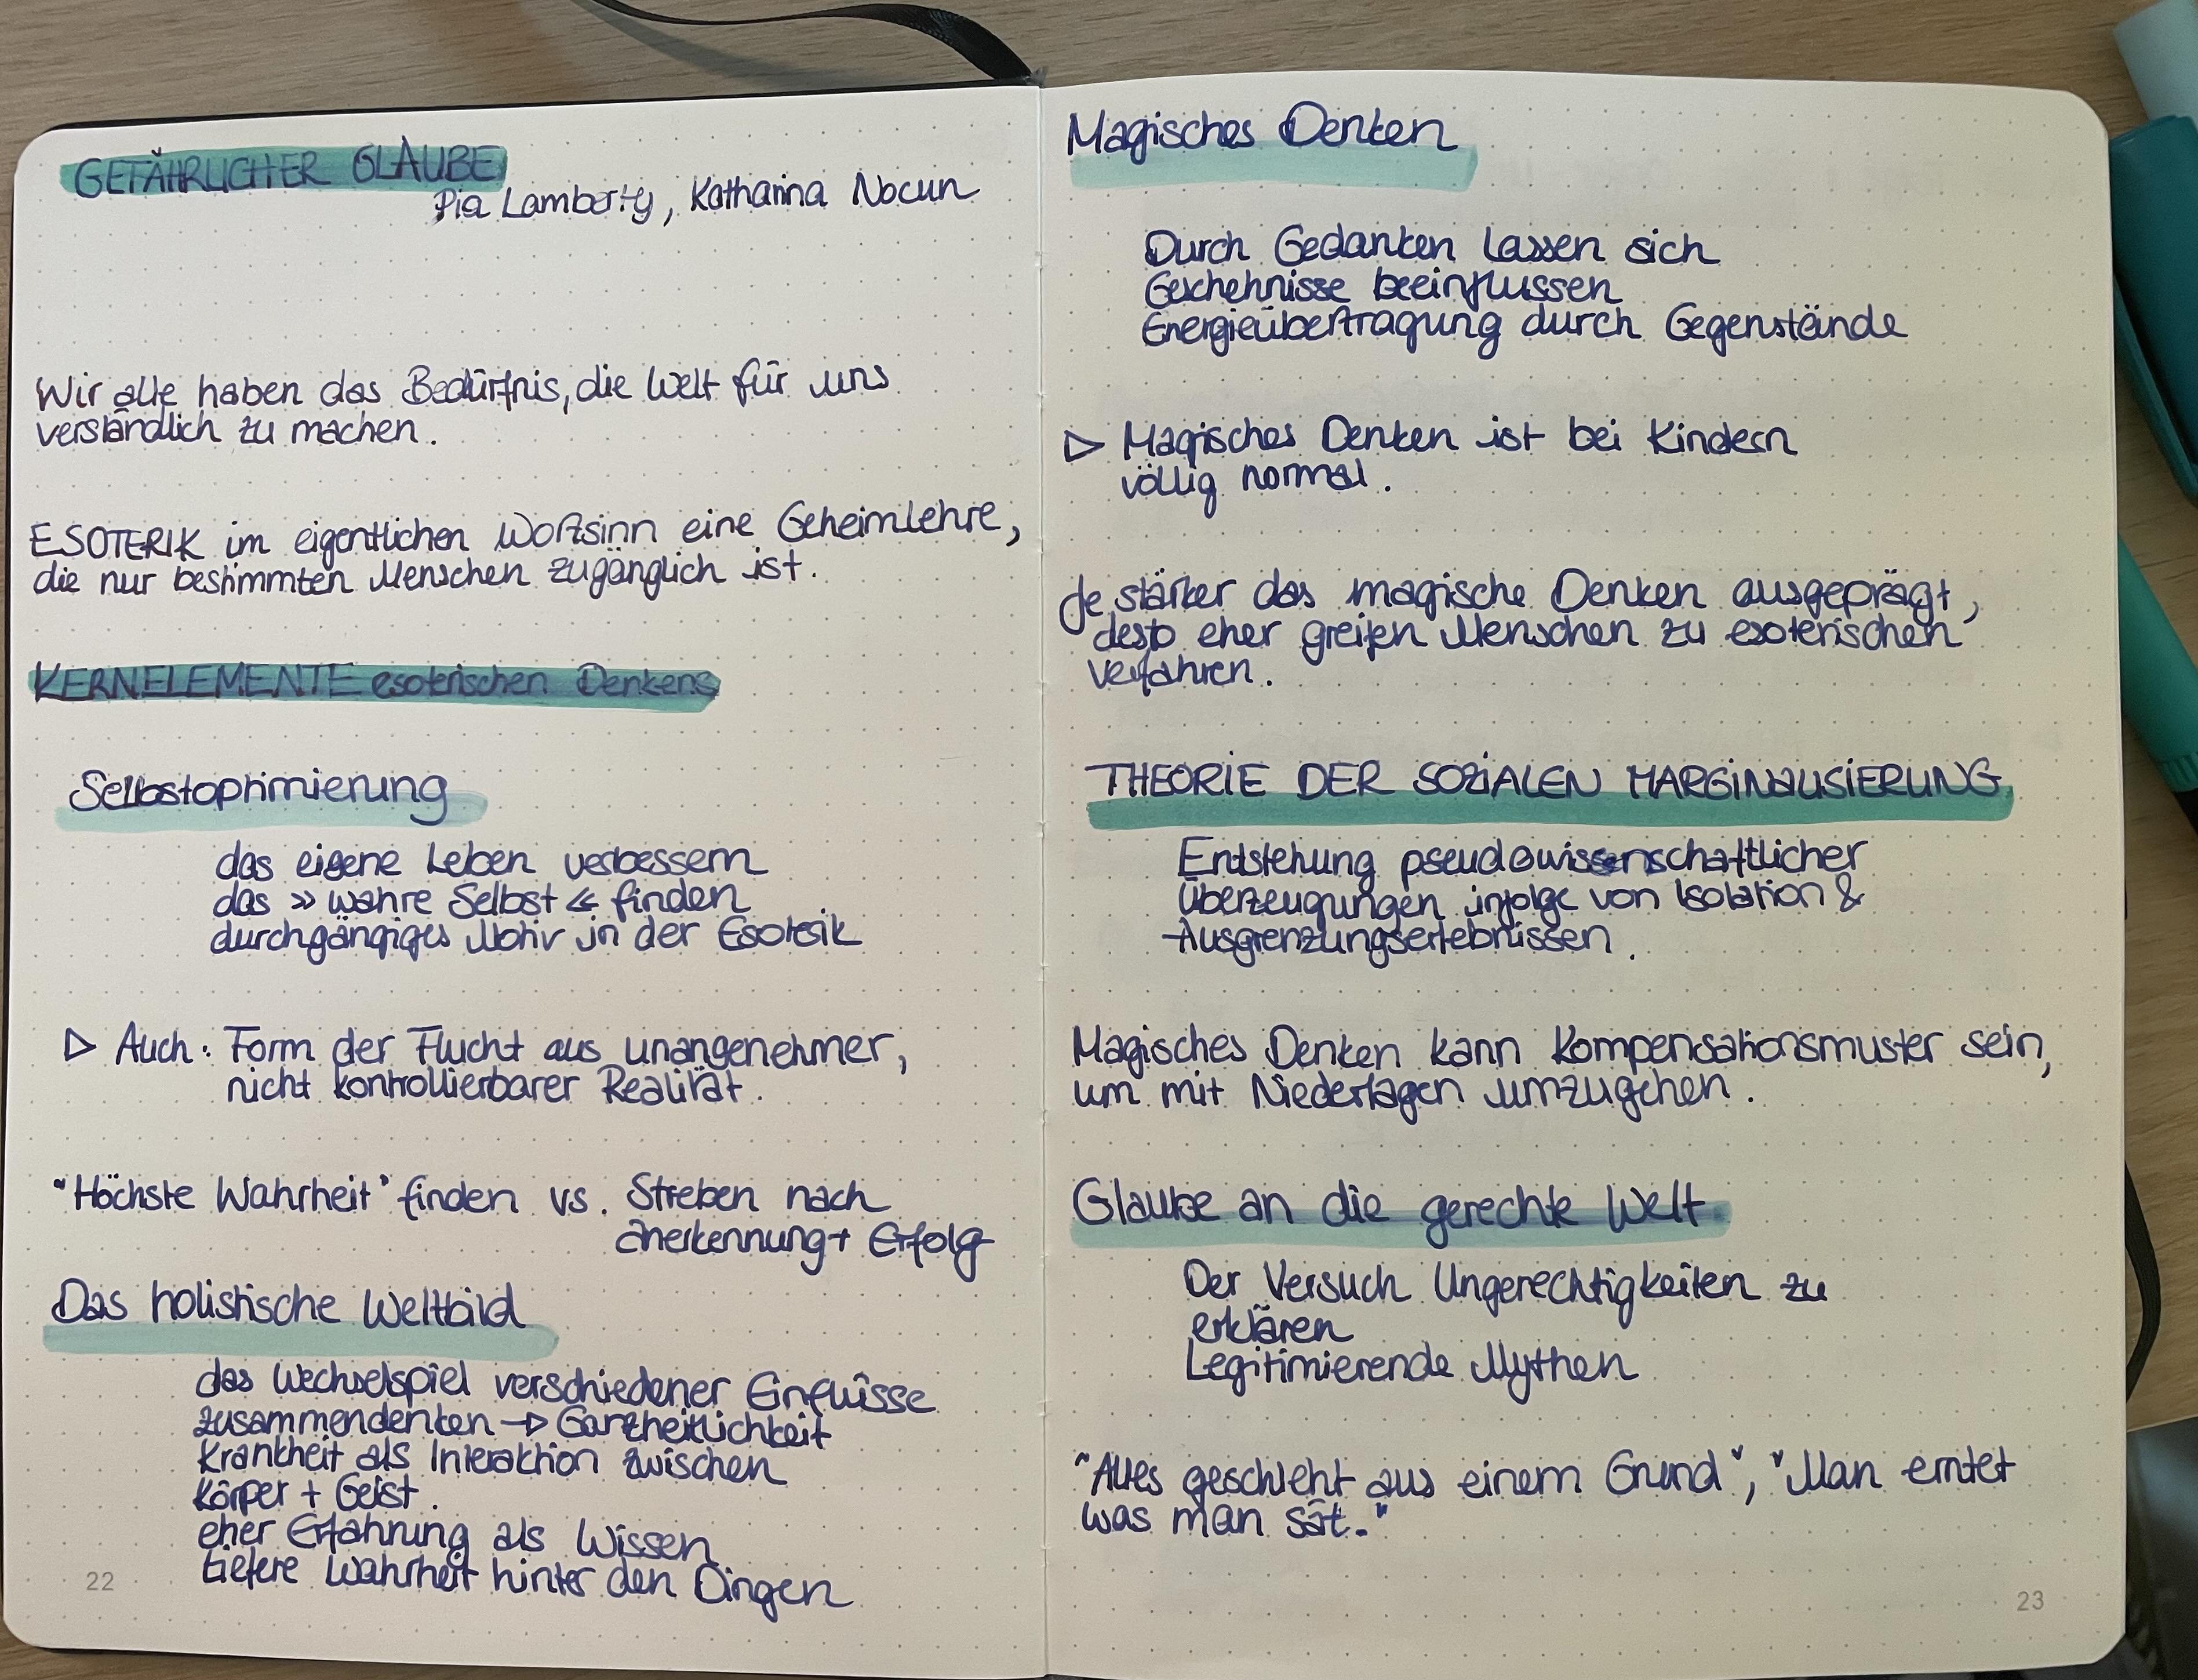 GEFÄHRLICHER GLAUBE
Pia Lamberty, Katharina Nocun
Wir alle haben das Bedürfnis, die Welt für uns
verständlich zu machen.
ESOTERIK im eigentlichen Wortsinn eine Geheimlehre,
die nur bestimmten Menschen zugänglich ist.
KERNELEMENTE esoterischen Denkens
Selbstoptimierung
das eigene Leben verbessern
das »wahre Selbst« finden
durchgängiges Motiv in der Esoterik
▷ Auch: Form der Flucht aus unangenehmer,
nicht kontrollierbarer Realität.
"Höchste Wahrheit" finden vs. Streben nach
Anerkennung + Erfolg
Das holistische Weltbild
das Wechselspiel verschiedener Einflüsse
zusammendenken → Ganzheitlichkeit
Krankheit als Interaktion zwischen
Körper + Geist.
eher Erfahrung als Wissen
tiefere Wahrheit hinter den Dingen
22
Magisches Denken
Durch Gedanken lassen sich
Geschehnisse beeinflussen
Energieübertragung durch Gegenstände
▷ Magisches Denken ist bei Kindern
völlig normal.
Je stärker das magische Denken ausgeprägt,
desto eher greifen Menschen zu esoterischen
Verfahren.
THEORIE DER SOZIALEN MARGINALISIERUNG
Entstehung pseudowissenschaftlicher
Überzeugungen infolge von Isolation &
Ausgrenzungserlebnissen.
Magisches Denken kann Kompensationsmuster sein,
um mit Niederlagen umzugehen.
Glaube an die gerechte Welt
Der Versuch Ungerechtigkeiten zu
erklären
Legitimierende Mythen
"Alles geschieht aus einem Grund", "Man erntet
was man sät."
23